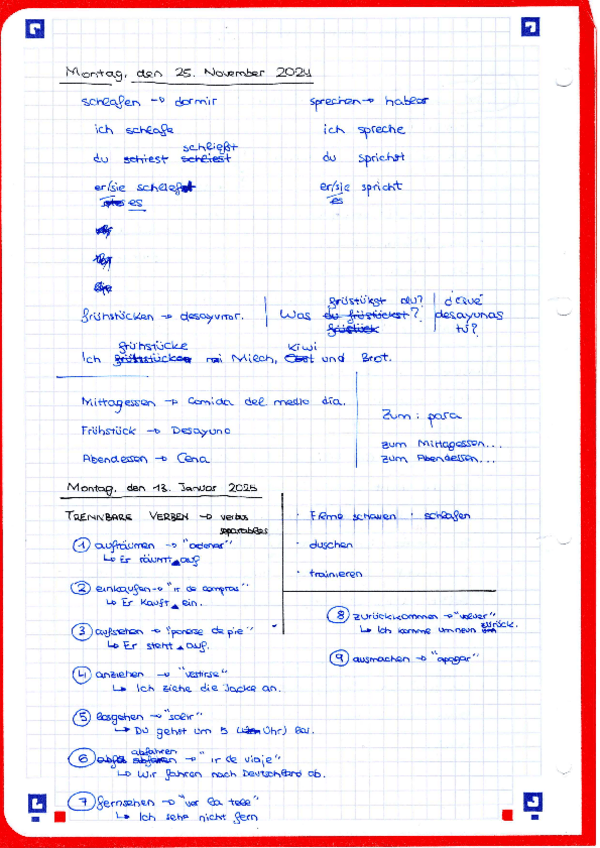 Montag, den 25. November 2024
schlafen → dormir
ich schlafe
schließt
du schiest schliest
er/sie schläft
es
sprechen → hablar
ich spreche
du sprichst
er/sie spricht
es
frühstücken → desayunar.
früstükst du?
Was du früstückst?
früstück
¿qué
desayunas
tú?
frühstücke
kiwi
Ich mi Milech, und Brot.
Mittagessen → Comida del medio día.
Frühstück → Desayuno
Abendessen → Cena
Zum : para
zum Mittagessen...
zum Abendessen...
Montag, den 13. Januar 2025
TRENNBARE VERBEN → verbos
separables
① aufräumen → "ordenar"
↳ Er räumt ▲ auf
② einkaufen → "ir de compras"
↳ Er kauft ▲ ein.
③ aufstehen → "ponerse de pie"
↳ Er steht ▲ auf.
④ anziehen → "vestirse"
↳ Ich ziehe die Jacke an.
⑤ losgehen → "salir"
↳ Du gehst um 5 ( Uhr) los.
abfahren
⑥ → "ir de viaje"
↳ Wir fahren nach Deutschland ab.
⑦ fernsehen → "ver la tele"
↳ Ich sehe nicht fern
· Filme schauen · schlafen
· duschen
· trainieren
⑧ zurückkommen → "volver"
↳ Ich komme um neun zurück.
⑨ ausmachen → "apagar"